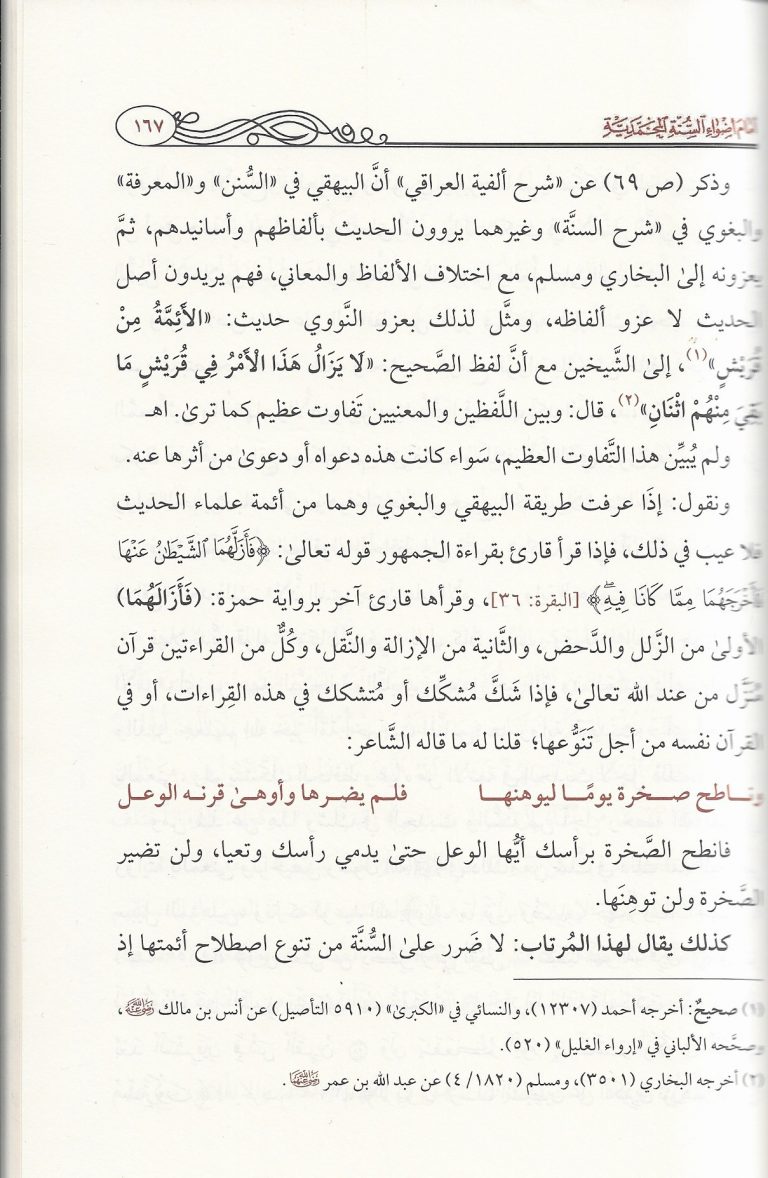 أمام أضواء السنة المحمدية
١٦٧
وذكر (ص ٦٩) عن «شرح ألفية العراقي» أنَّ البيهقي في «السُّنن» و«المعرفة»
والبغوي في «شرح السنَّة» وغيرهما يروون الحديث بألفاظهم وأسانيدهم، ثمَّ
يعزونه إلىٰ البخاري ومسلم، مع اختلاف الألفاظ والمعاني، فهم يريدون أصل
الحديث لا عزو ألفاظه، ومثَّل لذلك بعزو النَّووي حديث: «الأَئِمَّةُ مِنْ
قُرَيْشٍ»(١)، إلىٰ الشَّيخين مع أنَّ لفظ الصَّحيح: «لَا يَزَالُ هَذَا الْأَمْرُ فِي قُرَيْشٍ مَا
بَقِيَ مِنْهُمْ اثْنَانِ»(٢)، قال: وبين اللَّفظين والمعنيين تَفاوت عظيم كما ترىٰ. اهـ
ولم يُبيِّن هذا التَّفاوت العظيم، سَواء كانت هذه دعواه أو دعوىٰ من أثرها عنه.
ونقول: إذَا عرفت طريقة البيهقي والبغوي وهما من أئمة علماء الحديث
فلا عيب في ذلك، فإذا قرأ قارئ بقراءة الجمهور قوله تعالىٰ: ﴿فَأَزَلَّهُمَا ٱلشَّيْطَٰنُ عَنْهَا
فَأَخْرَجَهُمَا مِمَّا كَانَا فِيهِ﴾ [البقرة: ٣٦]، وقرأها قارئ آخر برواية حمزة: (فَأَزَالَهُمَا)
الأولىٰ من الزَّلل والدَّحض، والثَّانية من الإزالة والنَّقل، وكُلٌّ من القراءتين قرآن
مُنزَّل من عند الله تعالىٰ، فإذا شَكَّ مُشكِّك أو مُتشكك في هذه القِراءات، أو في
القرآن نفسه من أجل تَنَوُّعها؛ قلنا له ما قاله الشَّاعر:
وناطح صخرة يومًا ليوهنها فلم يضرها وأوهىٰ قرنه الوعل
فانطح الصَّخرة برأسك أيُّها الوعل حتىٰ يدمي رأسك وتعيا، ولن تضير
الصَّخرة ولن توهِنَها.
كذلك يقال لهذا المُرتاب: لا ضَرر علىٰ السُّنَّة من تنوع اصطلاح أئمتها إذ
(١) صحيحٌ: أخرجه أحمد (١٢٣٠٧)، والنسائي في «الكبرىٰ» (٥٩١٠ التأصيل) عن أنس بن مالك رضي الله عنه،
وصحَّحه الألباني في «إرواء الغليل» (٥٢٠).
(٢) أخرجه البخاري (٣٥٠١)، ومسلم (١٨٢٠/ ٤) عن عبد الله بن عمر رضي الله عنهما.